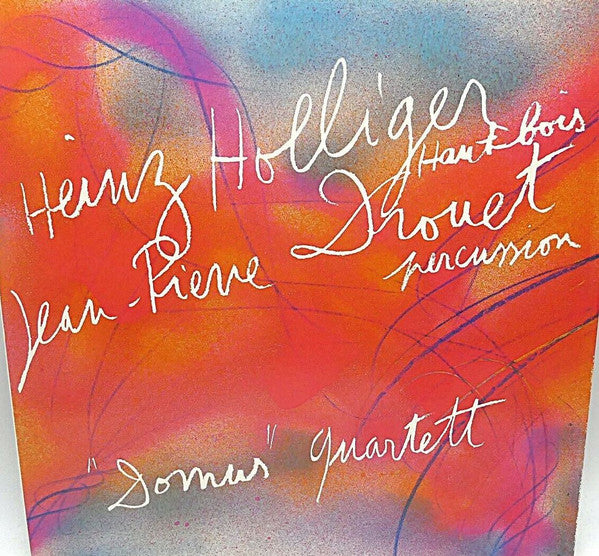 Heinz Holliger
Hautbois
Jean-Pierre Drouet
percussion
"Domus" quartett